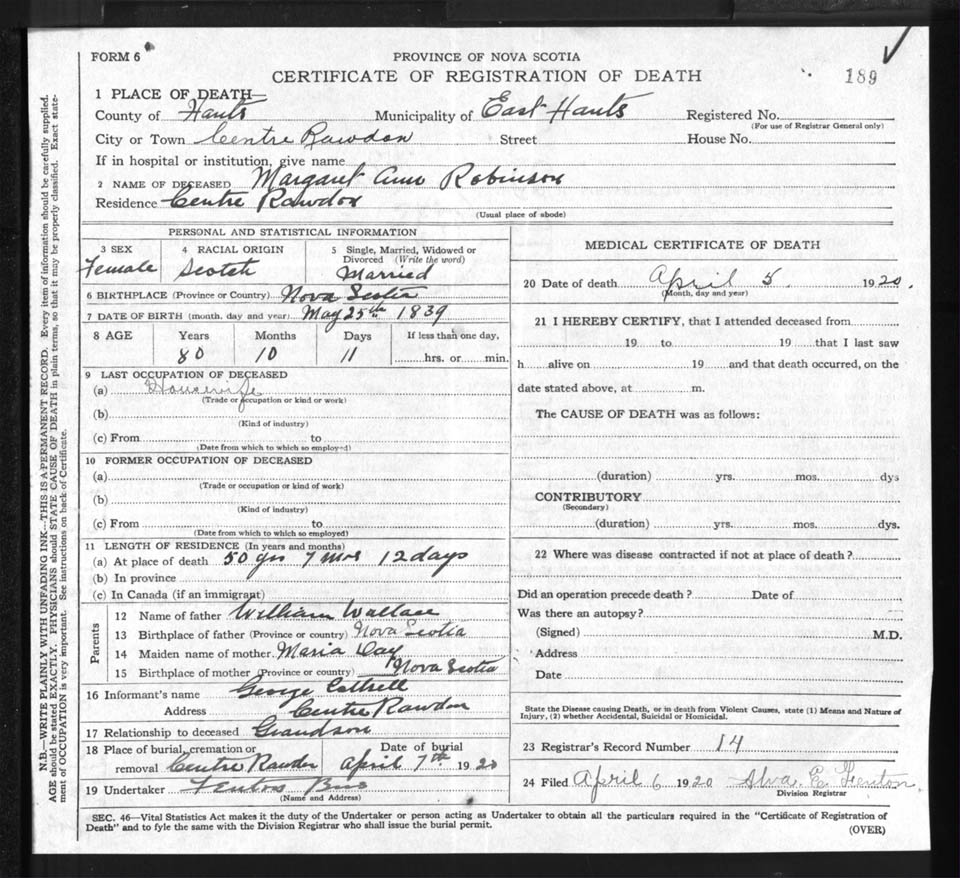 FORM 6
PROVINCE OF NOVA SCOTIA
CERTIFICATE OF REGISTRATION OF DEATH
189
1 PLACE OF DEATH—
County of Hants Municipality of East Hants Registered No.
(For use of Registrar General only)
City or Town Centre Rawdon Street House No.
If in hospital or institution, give name
2 NAME OF DECEASED Margaret Ann Robinson
Residence Centre Rawdon
(Usual place of abode)
PERSONAL AND STATISTICAL INFORMATION
3 SEX 4 RACIAL ORIGIN 5 Single, Married, Widowed or Divorced (Write the word)
Female Scotch Married
6 BIRTHPLACE (Province or Country) Nova Scotia
7 DATE OF BIRTH (month, day and year) May 25th 1839
8 AGE Years Months Days If less than one day,
80 10 11 hrs. or min.
9 LAST OCCUPATION OF DECEASED
(a) Housewife
(Trade or occupation or kind or work)
(b)
(Kind of industry)
(c) From to
(Date from which to which so employed)
10 FORMER OCCUPATION OF DECEASED
(a)
(Trade or occupation or kind of work)
(b)
(Kind of industry)
(c) From to
(Date from which to which so employed)
11 LENGTH OF RESIDENCE (In years and months)
(a) At place of death 50 yrs 7 mos 12 days
(b) In province
(c) In Canada (if an immigrant)
Parents
12 Name of father William Wallace
13 Birthplace of father (Province or country) Nova Scotia
14 Maiden name of mother Maria Day
15 Birthplace of mother (Province or country) Nova Scotia
16 Informant's name George Cottrell
Address Centre Rawdon
17 Relationship to deceased Grandson
18 Place of burial, cremation or removal Centre Rawdon Date of burial April 7th 1920
19 Undertaker Fentons Bros
(Name and Address)
MEDICAL CERTIFICATE OF DEATH
20 Date of death April 5 1920.
(Month, day and year)
21 I HEREBY CERTIFY, that I attended deceased from
19 to 19 that I last saw
h alive on 19 and that death occurred, on the
date stated above, at m.
The CAUSE OF DEATH was as follows:
(duration) yrs. mos. dys
CONTRIBUTORY
(Secondary)
(duration) yrs. mos. dys.
22 Where was disease contracted if not at place of death?
Did an operation precede death? Date of
Was there an autopsy?
(Signed) M.D.
Address
Date
State the Disease causing Death, or in death from Violent Causes, state (1) Means and Nature of
Injury, (2) whether Accidental, Suicidal or Homicidal.
23 Registrar's Record Number 14
24 Filed April 6 1920 Alva E Fenton
Division Registrar
SEC. 46—Vital Statistics Act makes it the duty of the Undertaker or person acting as Undertaker to obtain all the particulars required in the "Certificate of Registration of
Death" and to fyle the same with the Division Registrar who shall issue the burial permit.
(OVER)
N.B.—WRITE PLAINLY WITH UNFADING INK—THIS IS A PERMANENT RECORD. Every item of information should be carefully supplied.
AGE should be stated EXACTLY. PHYSICIANS should STATE CAUSE OF DEATH in plain terms, so that it may be properly classified. Exact state-
ment of OCCUPATION is very important. See instructions on back of Certificate.